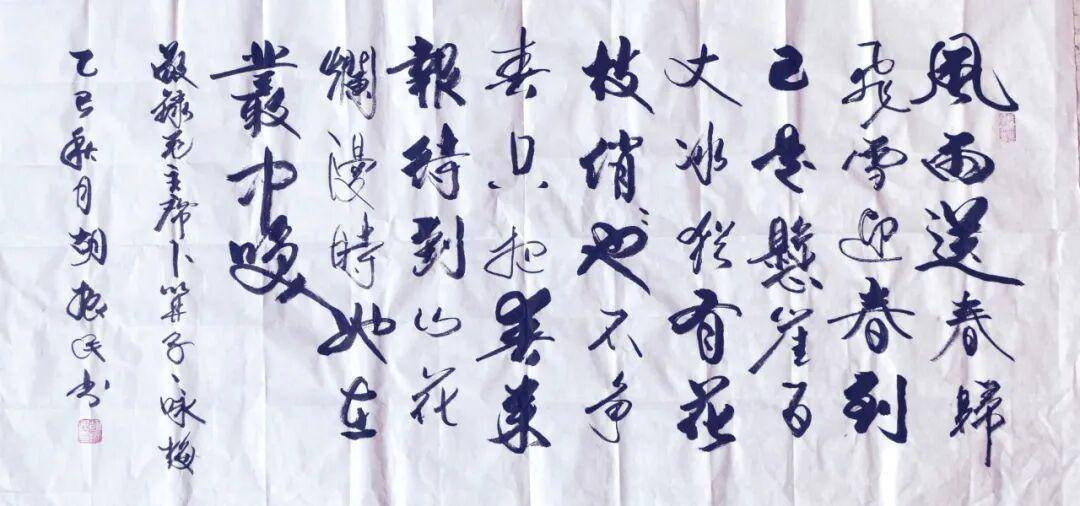 風雨送春歸
飛雪迎春到
已是懸崖百
丈冰猶有花
枝俏〻也不争
春只把春来
報待到山花
爛漫時她在
叢中笑
敬録毛主席卜算子、咏梅
乙巳秋月胡振民书